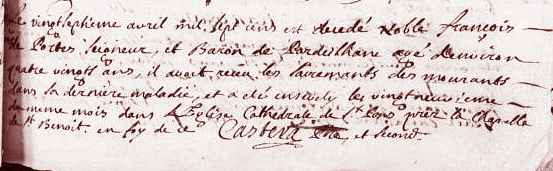 Le vingtseptieme avril mil sept cens est decedé noble françois
de Portes seigneur, et Baron de Pardeilhane agé denviron
quatre vingts ans, il avoit receu les sacremants des mourants
dans sa derniere maladie, et a eté enseveli le vingtneuvieme
du meme mois dans l'Eglise Cathedrale de St Pons près la Chapelle
de St Benoit. en foy de ce Castera et second.